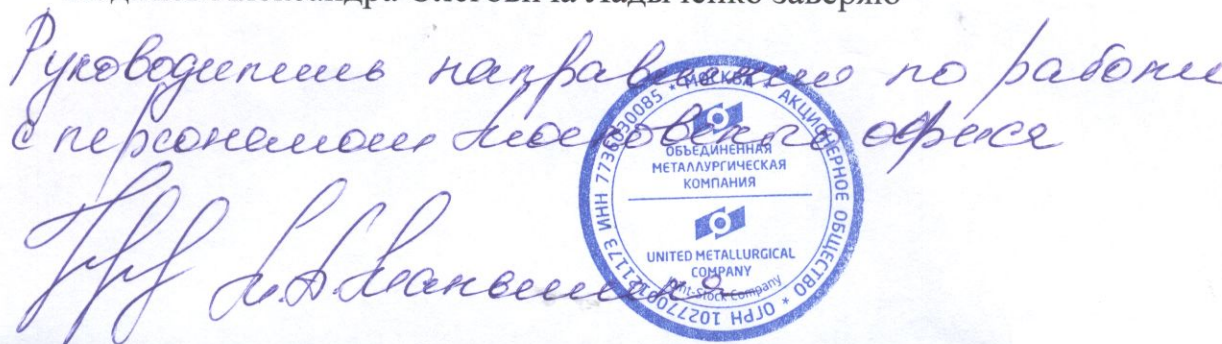 Александра Олеговича Ладыченко заверяю
Руководитель направления по работе
с персоналом московского офиса
МОСКВА * АКЦИОНЕРНОЕ ОБЩЕСТВО * ОГРН 1027700 ИНН 7736030085 *
ОБЪЕДИНЕННАЯ
МЕТАЛЛУРГИЧЕСКАЯ
КОМПАНИЯ
UNITED METALLURGICAL
COMPANY
Joint-Stock Company